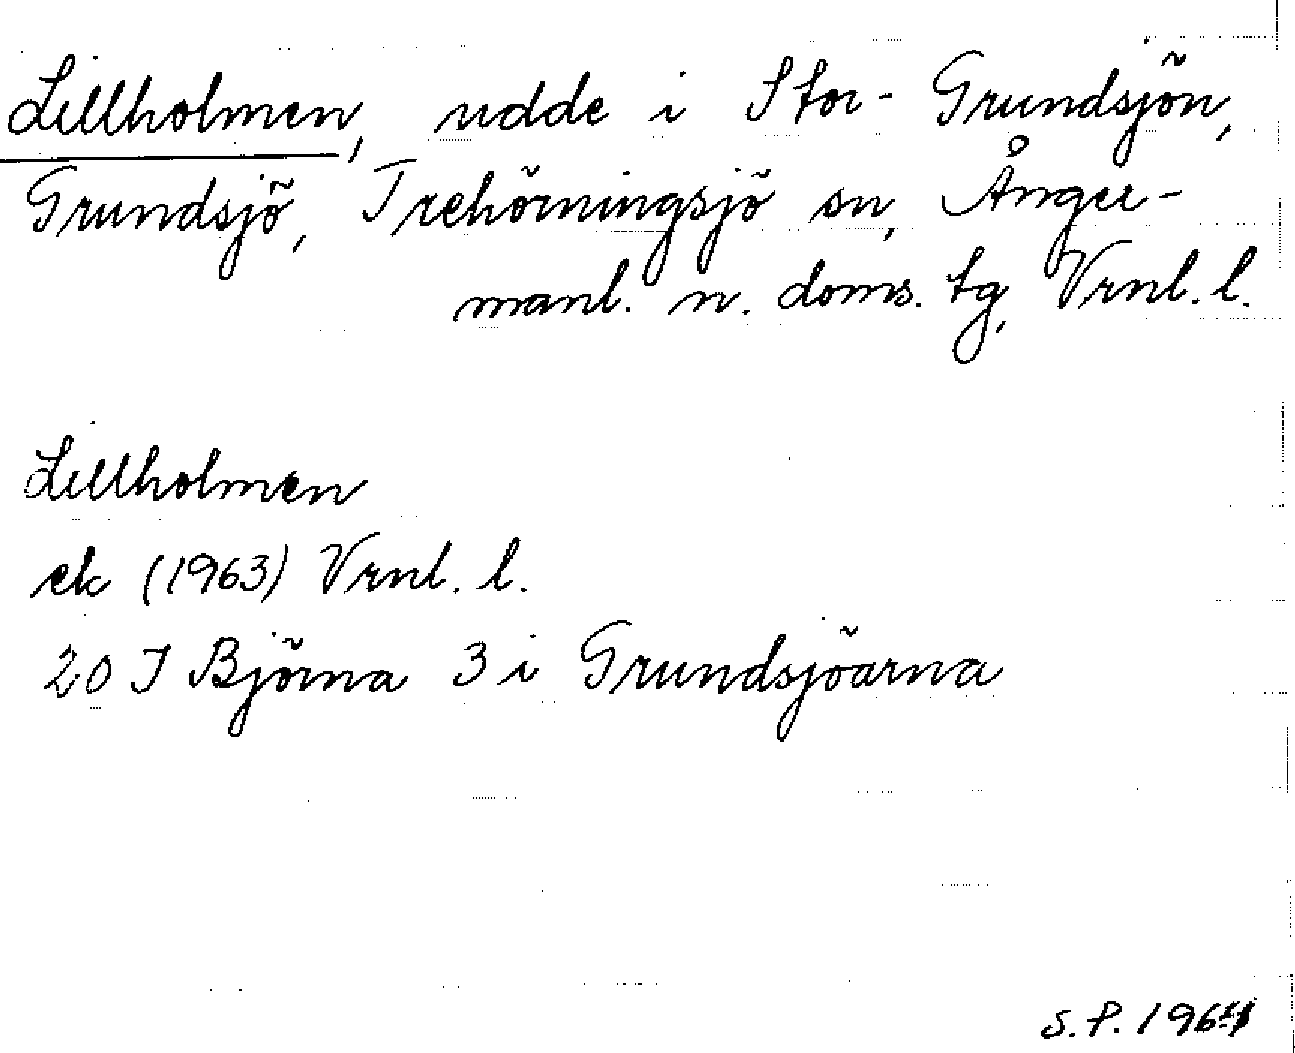 Lillholmen, udde i Stor-Grundsjön,
Grundsjö, Trehörningsjö sn, Ånger-
manl. n. doms. tg, Vrnl. l.
Lillholmen
ek (1963) Vrnl. l.
20 I Björna 3 i Grundsjöarna
S.P. 1964